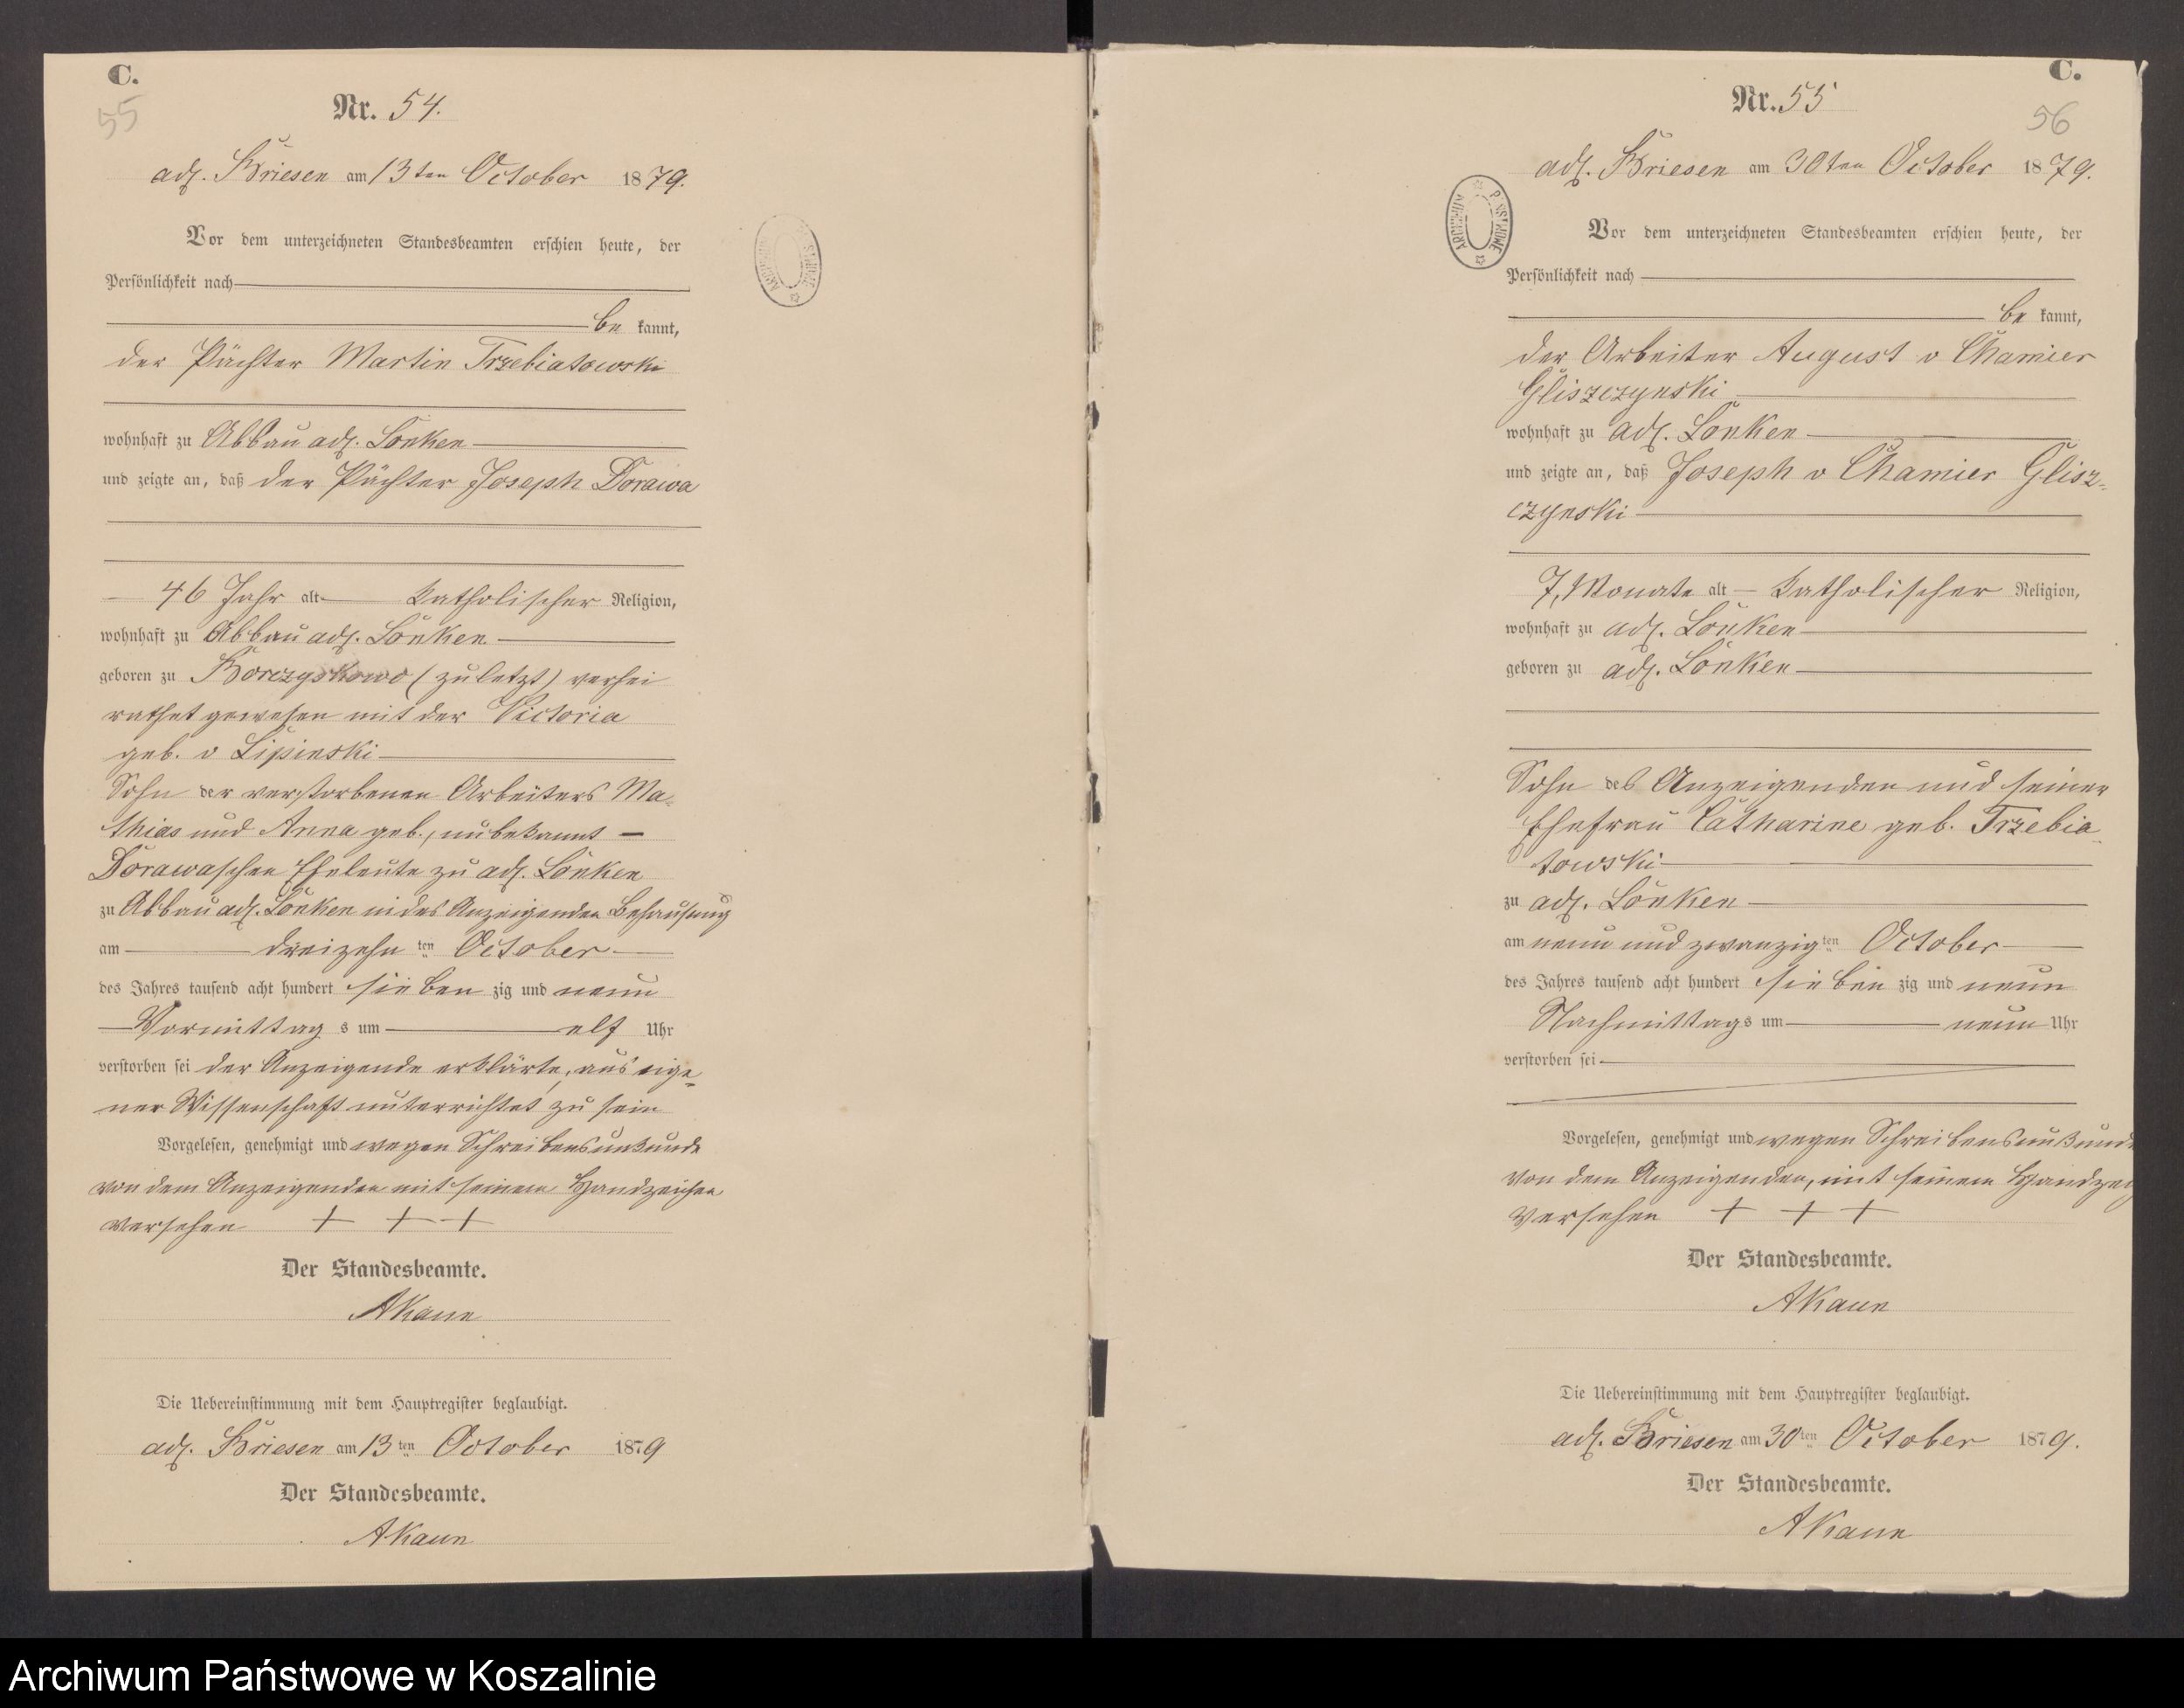 C.
55
Nr. 54.
adl. Briesen am 13ten October 1879.
Vor dem unterzeichneten Standesbeamten erschien heute, der
Persönlichkeit nach
be kannt,
der Pächter Martin Trzebiatowski
wohnhaft zu Abbau adl. Lonken
und zeigte an, daß der Pächter Joseph Dorawa
46 Jahr alt katholischer Religion,
wohnhaft zu Abbau adl. Lonken
geboren zu Borczyskowo (zuletzt) verhei
rathet gewesen mit der Victoria
geb. v Lipinski
Sohn der verstorbenen Arbeiters Ma-
thias und Anna geb., unbekannt
Dorawaschen Eheleute zu adl. Lonken
zu Abbau adl. Lonken in des Anzeigenden Behausung
am dreizehn ten October
des Jahres tausend acht hundert sieben zig und neun
Vormittag s um elf Uhr
verstorben sei der Anzeigende erklärte, aus eige-
ner Wissenschaft unterrichtet zu sein
Vorgelesen, genehmigt und wegen Schreibensunkunde
von dem Anzeigenden mit seinem Handzeichen
versehen + + +
Der Standesbeamte.
AKaun
Die Uebereinstimmung mit dem Hauptregister beglaubigt.
adl. Briesen am 13ten October 1879
Der Standesbeamte.
AKaun
C.
56
Nr. 55
adl. Briesen am 30ten October 1879.
ARCHIWUM PAŃSTWOWE
Vor dem unterzeichneten Standesbeamten erschien heute, der
Persönlichkeit nach
be kannt,
der Arbeiter August v Chamier
Gliszczynski
wohnhaft zu adl. Lonken
und zeigte an, daß Joseph v Chamier Glisz-
czynski
7, Monate alt katholischer Religion,
wohnhaft zu adl. Lonken
geboren zu adl. Lonken
Sohn des Anzeigenden und seiner
Ehefrau Catharine geb. Trzebia-
towski
zu adl. Lonken
am neun und zwanzig ten October
des Jahres tausend acht hundert sieben zig und neun
Nachmittags um neun Uhr
verstorben sei
Vorgelesen, genehmigt und wegen Schreibensunkunde
von dem Anzeigenden, mit seinem Handzei
versehen + + +
Der Standesbeamte.
AKaun
Die Uebereinstimmung mit dem Hauptregister beglaubigt.
adl. Briesen am 30ten October 1879.
Der Standesbeamte.
AKaun
Archiwum Państwowe w Koszalinie